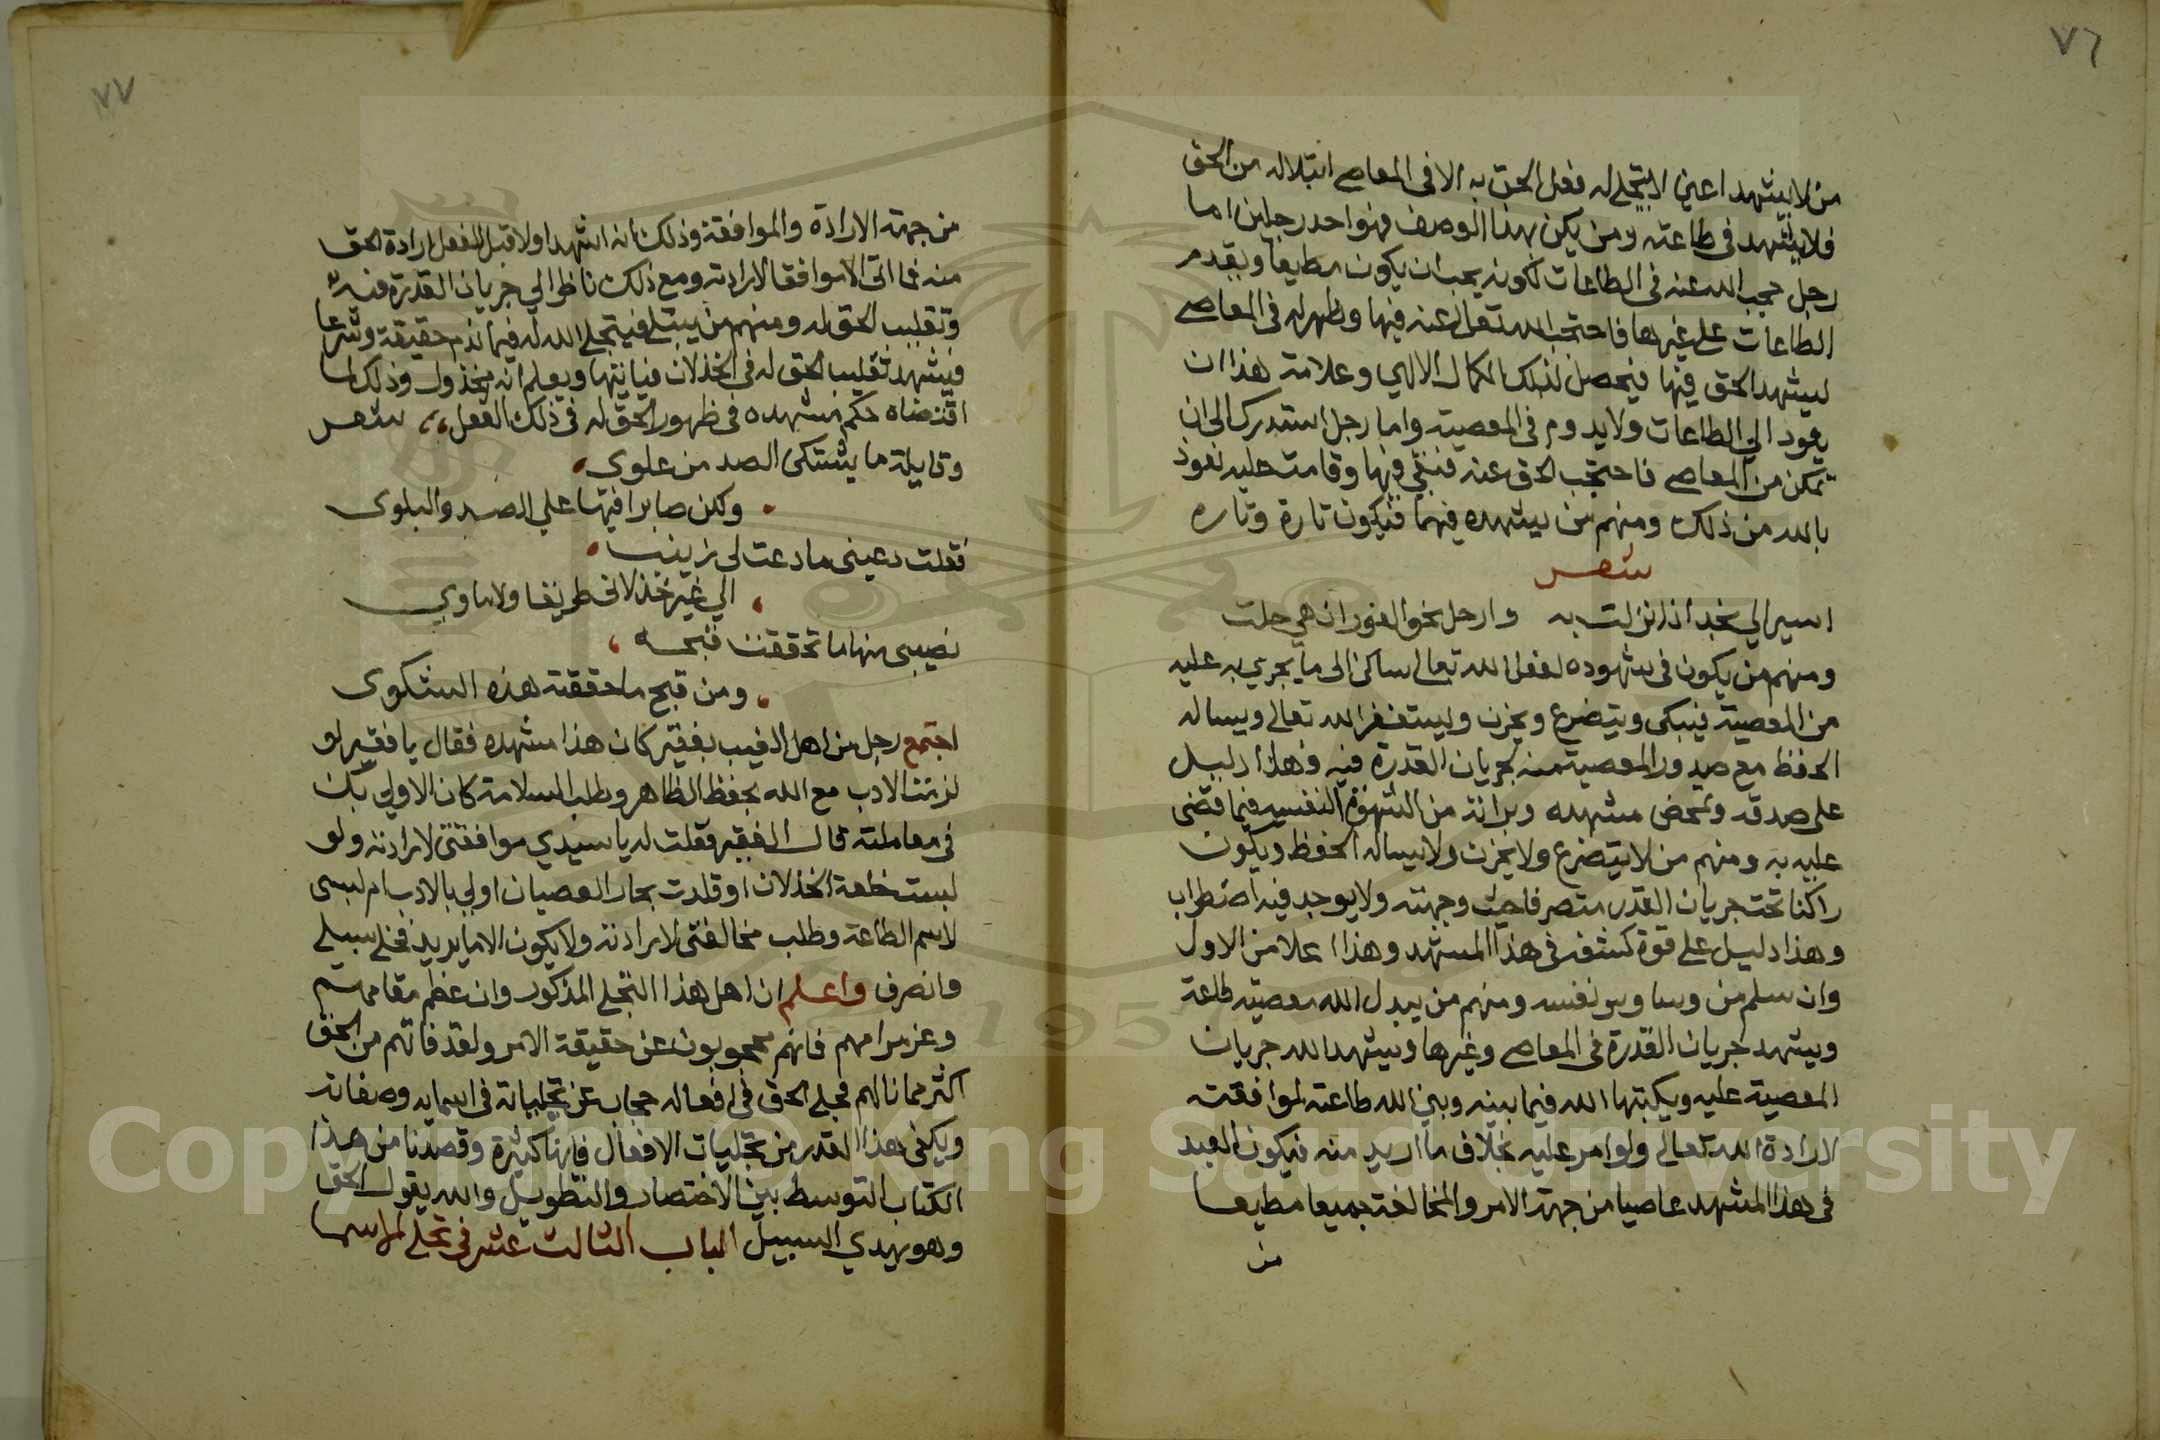 ٧٦
من لا يشهد اعني لا يتجلى له فعل الحق به الا في المعاصي ابتلاء له من الحق
فلا يشهد في طاعته ومن يكن بهذا الوصف فهو احد رجلين اما
رجل حجب الله عنه في الطاعات لكونه يحب ان يكون مطيعا ويقدم
الطاعات على غيرها فاحتجب الله تعالى عنه فيها وظهر له في المعاصي
ليشهد الحق فيها فيحصل لذلك الكمال الالهي وعلامة هذا ان
يعود الي الطاعات ولا يدوم في المعصية واما رجل استدرك الى ان
تمكن من المعاصي فاحتجب الحق عنه فبقي فيها وقامت عليه نعوذ
بالله من ذلك ومنهم من يشهده فيهما فيكون تارة وتاره
شعر
اسير الي نجد اذا نزلت به وارحل نحو الغور ان هي حلت
ومنهم من يكون في شهوده لفعل الله تعالى ساكن الى ما يجري به عليه
من المعصية فيبكى ويتضرع ويحزن وليستغفر الله تعالى ويساله
الحفظ مع صدور المعصية منه لجريان القدرة فيه وهذا دليل
على صدقه وتمحض مشهده وبراته من الشهوة النفسيه فيما قضى
عليه به ومنهم من لا يتضرع ولا يحزن ولا يساله الحفظ ويكون
راكنا تحت جريان القدر متصرفا حيث وجهته ولا يوجد فيه اضطراب
وهذا دليل على قوة كشفه في هذا المشهد وهذا اعلا من الاول
وان سلم من وساوس نفسه ومنهم من يبدل الله معصيته طاعة
ويشهد جريان القدرة في المعاصي وغيرها ويشهد الله جريان
المعصية عليه ويكتبها الله فيما بينه وبين الله طاعته لموافقته
لارادة الله تعالى ولو امر عليه بخلاف ما اريد منه فيكون العبد
في هذا المشهد عاصيا من جهة الامر والمخالفة جميعا مطيعا
من
٧٧
من جهة الارادة والموافقة وذلك انه اشهد اولا قبل الفعل ارادة الحق
منه فما اتى الا موافقا لارادته ومع ذلك ناظر الي جريان القدرة فيه
وتقليب الحق له ومنهم من يبتلى فيتجلى الله له فيما يذم حقيقة وشرعا
فيشهد تقليب الحق له في الخذلان فياتيها ويعلم انه مخذول وذلك لما
اقتضاه حكم مشهده في ظهور الحق له في ذلك الفعل شعر
وقايلة ما يشتكى الصد من علوى
وكن صابرا فيها علي الصد والبلوى
فقلت دعيني ما دعت لى زينب
الي غير خذلاني طريقا ولا ماوي
نصيبى منها ما تحققت قبحه
ومن قبح ما حققته هذه الشكوى
اجتمع رجل من اهل الغيب بفقير كان هذا مشهده فقال يا فقير لو
لزمت الادب مع الله بحفظ الظاهر وطلب السلامة كان الاولي بك
في معاملته قال الفقير فقلت له يا سيدي موافقتى لارادته ولو
لبست خلعة الخذلان او قلدت بحار العصيان اولي بالادب ام لبسى
لاسم الطاعة وطلب مخالفتى لارادته ولا يكون الا ما يريد فخلي سبيلي
وانصرف واعلم ان اهل هذا التجلي المذكور وان عظم مقامهم
وعز مرامهم فانهم محجوبون عن حقيقة الامر ولقد فاتهم من الحق
اكثر مما نالهم فتجلي الحق في افعاله حجاب عن تجلياته في اسمايه وصفاته
ويكفي هذا القدر من تجليات الافعال فانها كثيرة وقصدنا من هذا
الكتاب التوسط بين الاختصار والتطويل والله يقول الحق
وهو يهدي السبيل الباب الثالث عشر في تجلي الاسما
Copyright © King Saud University
1957